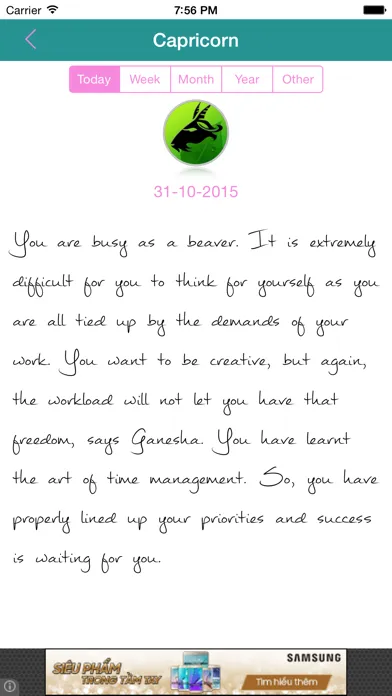 Carrier 7:56 PM
Capricorn
Today Week Month Year Other
31-10-2015
You are busy as a beaver. It is extremely
difficult for you to think for yourself as you
are all tied up by the demands of your
work. You want to be creative, but again,
the workload will not let you have that
freedom, says Ganesha. You have learnt
the art of time management. So, you have
properly lined up your priorities and success
is waiting for you.
SIÊU PHẨM
TRONG TẦM TAY
SAMSUNG
Tìm hiểu thêm